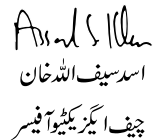 اسد سیف اللہ خان
چیف ایگزیکٹیو آفیسر